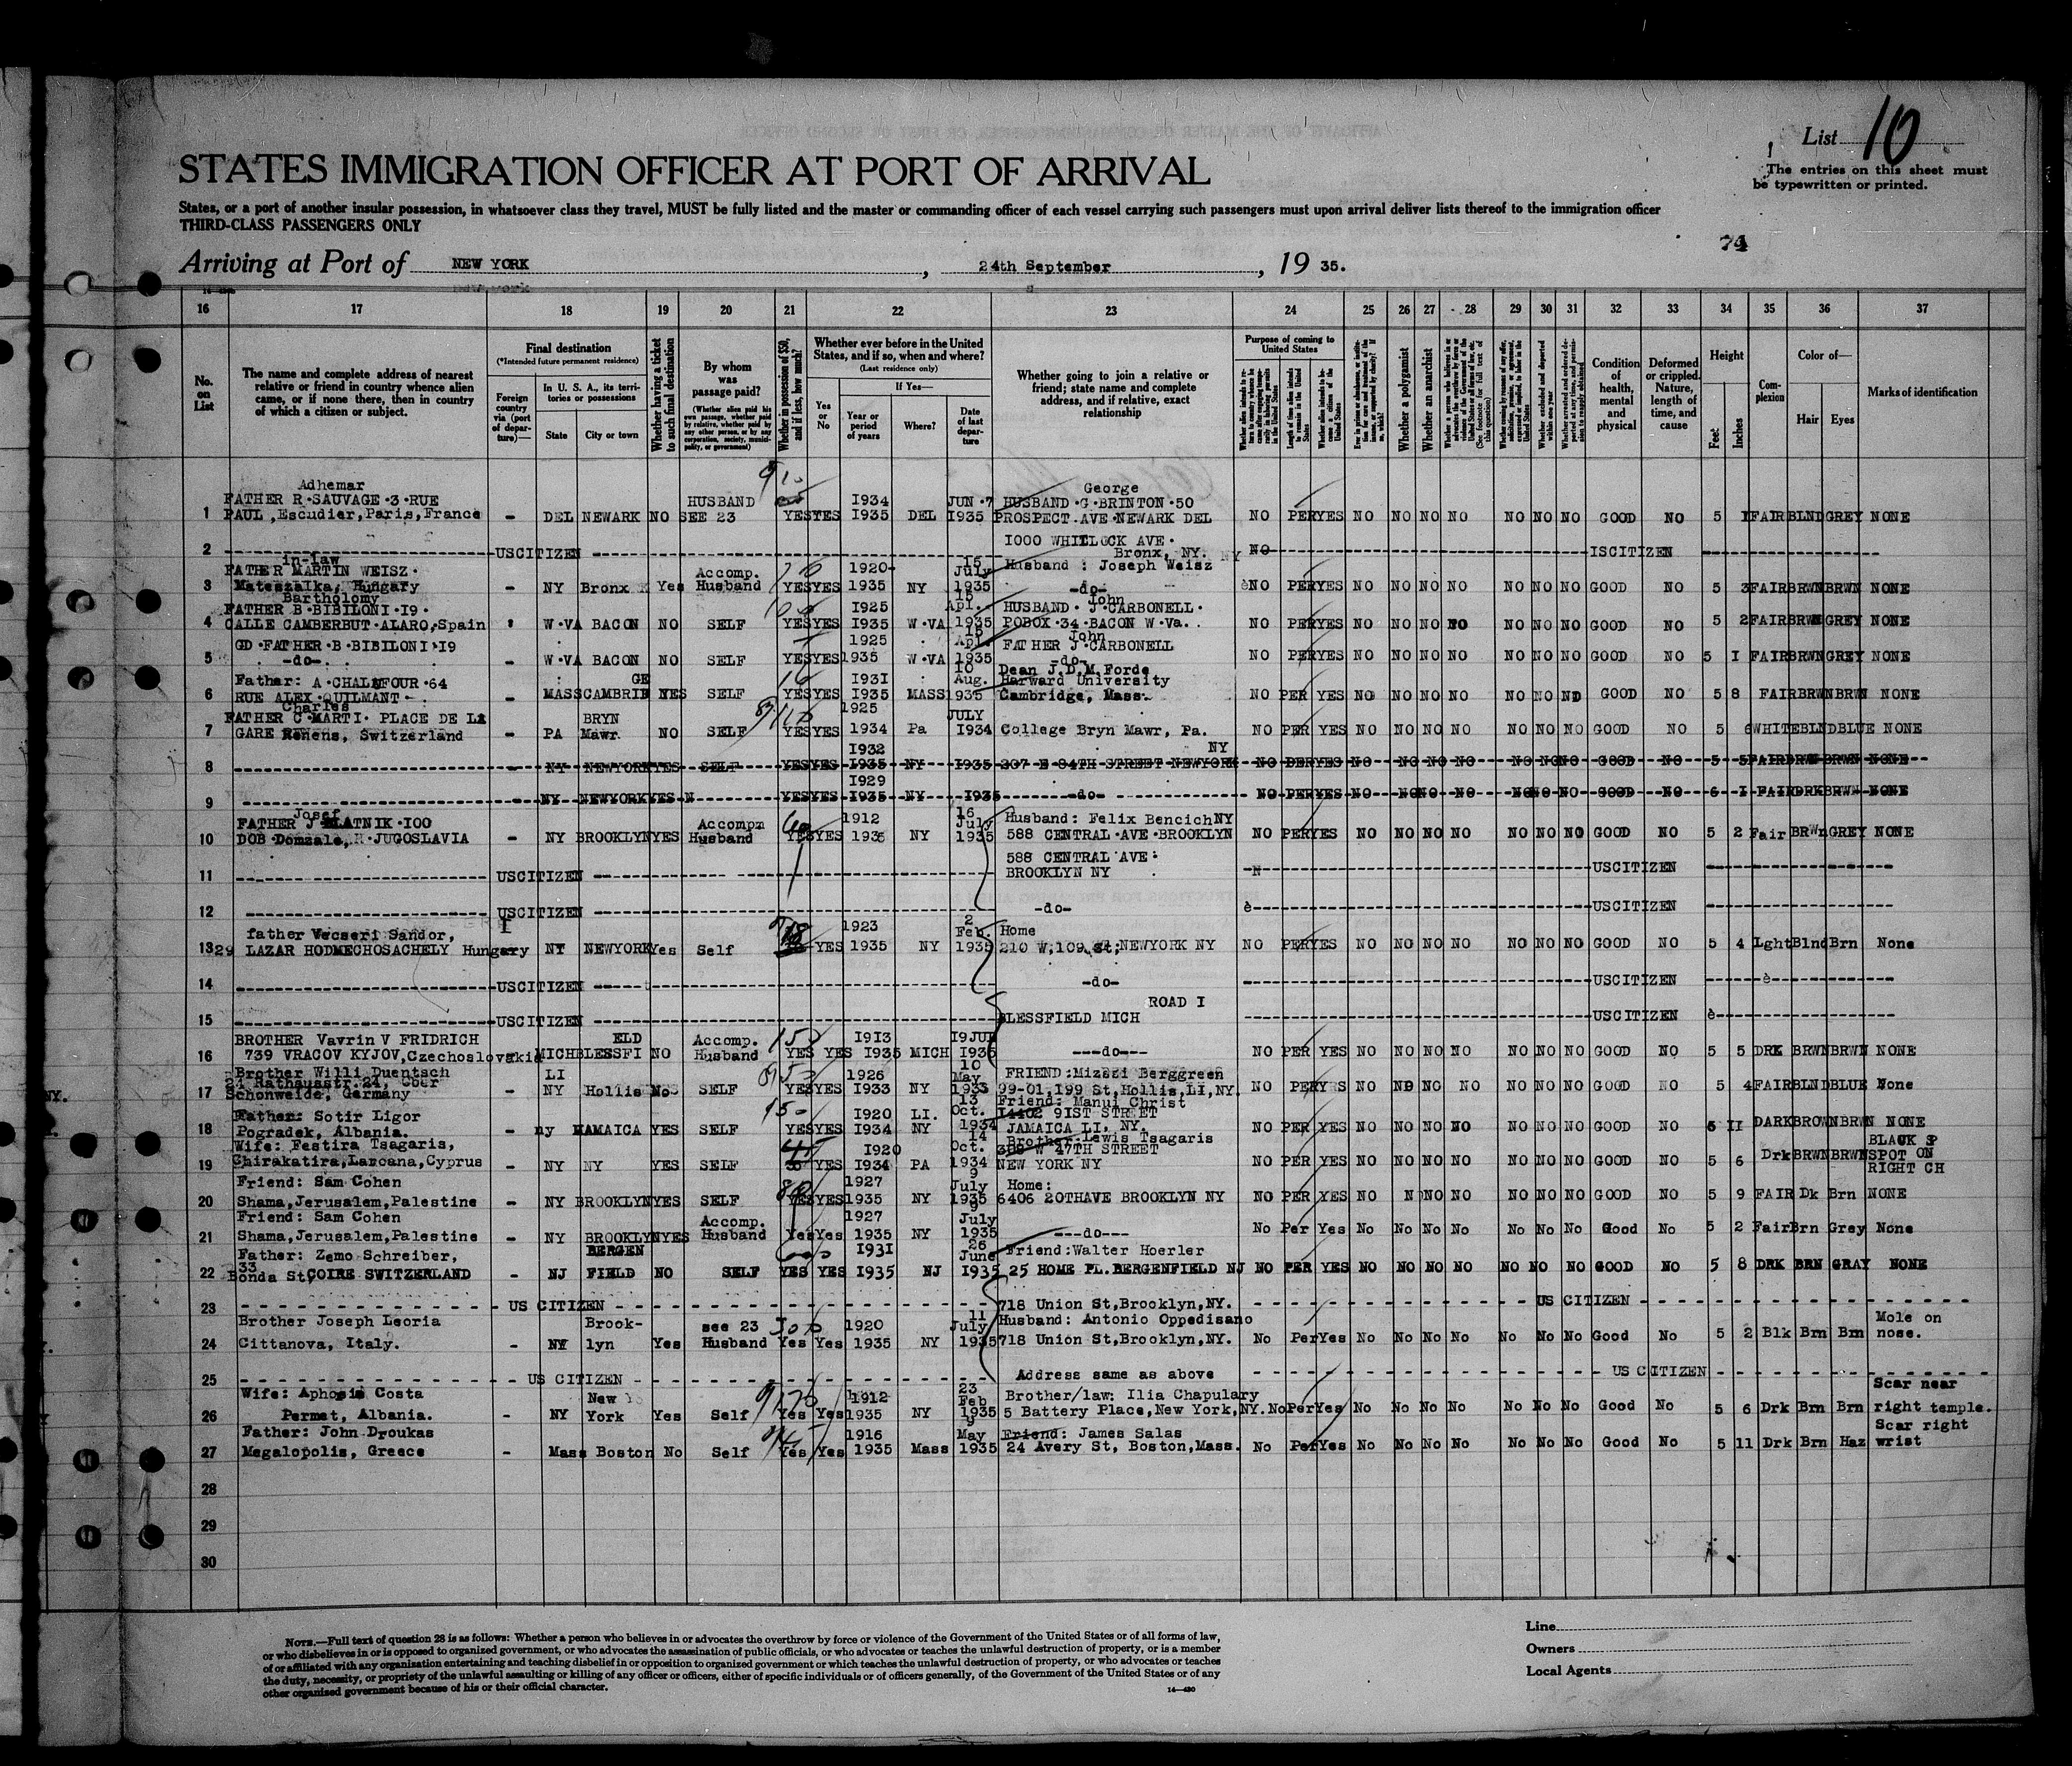 List 10
The entries on this sheet must
be typewritten or printed.
STATES IMMIGRATION OFFICER AT PORT OF ARRIVAL
States, or a port of another insular possession, in whatsoever class they travel, MUST be fully listed and the master or commanding officer of each vessel carrying such passengers must upon arrival deliver lists thereof to the immigration officer
THIRD-CLASS PASSENGERS ONLY
74
Arriving at Port of NEW YORK , 24th September , 19 35.
16 17 18 19 20 21 22 23 24 25 26 27 28 29 30 31 32 33 34 35 36 37
No. on List
The name and complete address of nearest relative or friend in country whence alien came, or if none there, then in country of which a citizen or subject.
Final destination
(*Intended future permanent residence)
Foreign country via (port of departure)—
In U. S. A., its territories or possessions
State City or town
Whether having a ticket to such final destination
By whom was passage paid?
(Whether alien paid his own passage, whether paid by relative, whether paid by any other person, or by any corporation, society, municipality, or government)
Whether in possession of $50, and if less, how much?
Whether ever before in the United States, and if so, when and where?
(Last residence only)
Yes or No
If Yes—
Year or period of years
Where?
Date of last departure
Whether going to join a relative or friend; state name and complete address, and if relative, exact relationship
Purpose of coming to United States
Whether a polygamist
Whether an anarchist
Condition of health, mental and physical
Deformed or crippled. Nature, length of time, and cause
Height
Feet Inches
Complexion
Color of—
Hair Eyes
Marks of identification
Adhemar George
FATHER R·SAUVAGE·3·RUE HUSBAND 1934 JUN·7 HUSBAND·G·BRINTON·50
1 PAUL,Escudier,Paris,France - DEL NEWARK NO SEE 23 YES YES 1935 DEL 1935 PROSPECT·AVE·NEWARK DEL NO PER YES NO NO NO NO NO NO NO GOOD NO 5 1 FAIR BLND GREY NONE
1000 WHITLOCK AVE·
2 USCITIZEN Bronx, NY. NO ISCITIZEN
in-law 15
FATHER MARTIN WEISZ· Accomp. 1920- July Husband : Joseph Weisz
3 Mateszalka, Hungary - NY Bronx Yes Husband YES YES 1935 NY 1935 -do- NO PER YES NO NO NO NO NO NO NO GOOD NO 5 3 FAIR BRWN BRWN NONE
Bartholomy 15 John
FATHER B·BIBILONI·19· 1925 Apl. HUSBAND· J·CARBONELL·
4 CALLE CAMBERBUT·ALARO,Spain W·VA BACON NO SELF YES YES 1935 W·VA 1935 POBOX·34·BACON W·Va. NO PER YES NO NO NO NO NO NO NO GOOD NO 5 2 FAIR BRWN GREY NONE
15 John
GD·FATHER·B·BIBILONI·19 1925 Apl. FATHER J·CARBONELL
5 -do- - W·VA BACON NO SELF YES YES 1935 W·VA 1935 -do- NO PER YES NO NO NO NO NO NO NO GOOD NO 5 1 FAIR BRWN GREY NONE
10 Dean J.D.M.Forde
Father: A·CHALNFOUR·64 GE 16 1931 Aug. Harward University
6 RUE ALEX·QUILMANT· - MASS CAMBRID YES SELF YES YES 1935 MASS 1935 Cambridge, Mass. NO PER YES NO NO NO NO NO NO NO GOOD NO 5 8 FAIR BRWN BRWN NONE
Charles 1925
FATHER C·MARTI· PLACE DE LA BRYN JULY
7 GARE Renens, Switzerland - PA Mawr. NO SELF YES YES 1934 Pa 1934 College Bryn Mawr, Pa. NO PER YES NO NO NO NO NO NO NO GOOD NO 5 6 WHITE BLND BLUE NONE
1932 NY
8 NY NEWYORK YES SELF YES YES 1935 NY 1935 207 E 84TH STREET NEWYORK NO PER YES NO NO NO NO NO NO NO GOOD NO 5 5 FAIR BRWN BRWN NONE
1929
9 NY NEWYORK YES N YES YES 1935 NY 1935 -do- NO PER YES NO NO NO NO NO NO NO GOOD NO 6 1 FAIR DRK BRWN NONE
Josef 16
FATHER J·ZLATNIK·100 Accomp 1912 July Husband: Felix Bencich NY
10 DOB·Domzale, JUGOSLAVIA - NY BROOKLYN YES Husband YES YES 1935 NY 1935 588 CENTRAL·AVE·BROOKLYN NO PER YES NO NO NO NO NO NO NO GOOD NO 5 2 Fair BRWn GREY NONE
588 CENTRAL AVE·
11 USCITIZEN BROOKLYN NY USCITIZEN
12 USCITIZEN -do- USCITIZEN
2
father Vecseri Sandor, 1923 Feb. Home
13 29 LAZAR HODMECHOSACHELY Hungary NY NEWYORK Yes Self YES 1935 NY 1935 210 W;109 st; NEWYORK NY NO PER YES NO NO NO NO NO NO NO GOOD NO 5 4 Lght Blnd Brn None
14 USCITIZEN -do- USCITIZEN
ROAD I
15 USCITIZEN BLESSFIELD MICH USCITIZEN
BROTHER Vavrin V FRIDRICH ELD Accomp. 150 1913 19JUN
16 739 VRACOV KYJOV,Czechoslovakia MICH BLESSFI NO Husband YES YES 1935 MICH 1935 ---do--- NO PER YES NO NO NO NO NO NO NO GOOD NO 5 5 DRK BRWN BRWN NONE
Brother Willi Duentsch LI 10
24 Rathausstr.24, Ober 1926 May FRIEND:Mizzzi Berggreen
17 Schonweide, Germany - NY Hollis No SELF YES YES 1933 NY 1933 99-01,199 St,Hollis,LI,NY. NO PER YES NO NO NO NO NO NO NO GOOD NO 5 4 FAIR BLND BLUE None
13 Friend: Manui Christ
Father: Sotir Ligor 15- 1920 LI. Oct. 14402 91ST STREET
18 Pogradek, Albania. - ny JAMAICA YES SELF YES YES 1934 NY 1934 JAMAICA LI, NY. NO PER YES NO NO NO NO NO NO NO GOOD NO 5 11 DARK BROWN BRWN NONE
14 Brother:Lewis Tsagaris BLACK SP
Wife: Festira Tsagaris, 1920 Oct. W 47TH STREET SPOT ON
19 Chirakatira,Larcana,Cyprus - NY NY YES SELF YES 1934 PA 1934 NEW YORK NY NO PER YES NO NO NO NO NO NO NO GOOD NO 5 6 Drk BRWN BRWN RIGHT CH
9
Friend: Sam Cohen 1927 July Home:
20 Shama,Jerusalem,Palestine - NY BROOKLYN YES SELF YES YES 1935 NY 1935 6406 20THAVE BROOKLYN NY NO PER YES NO N NO NO NO NO NO GOOD NO 5 9 FAIR Dk Brn NONE
9
Friend: Sam Cohen Accomp. 1927 July
21 Shama,Jerusalem,Palestine - NY BROOKLYN YES Husband Yes Yes 1935 NY 1935 ---do--- No Per Yes No No No No No No No Good No 5 2 Fair Brn Grey None
26
Father: Zemo Schreiber, BERGEN 1931 June Friend:Walter Hoerler
33
22 Bonda St,COIRE SWITZERLAND - NJ FIELD NO SELF YES YES 1935 NJ 1935 25 HOME PL.BERGENFIELD NJ NO PER YES NO NO NO NO NO NO NO GOOD NO 5 8 DRK BRN GRAY NONE
23 US CITIZEN 718 Union St,Brooklyn,NY. US CITIZEN
11
Brother Joseph Leoria Brook- see 23 1920 July Husband: Antonio Oppedisano Mole on
24 Cittanova, Italy. - NY lyn Yes Husband Yes Yes 1935 NY 1935 718 Union St,Brooklyn,NY. No Per Yes No No No No No No No Good No 5 2 Blk Brn Brn nose.
25 US CITIZEN Address same as above US CITIZEN
23 Scar near
Wife: Aphosia Costa New 1912 Feb Brother/law: Ilia Chapulary
26 Permet, Albania. - NY York Yes Self Yes Yes 1935 NY 1935 5 Battery Place,New York,NY. No Per Yes No No No No No No No Good No 5 6 Drk Brn Brn right temple.
9 Scar right
Father: John Droukas 1916 May Friend: James Salas
27 Megalopolis, Greece - Mass Boston No Self Yes Yes 1935 Mass 1935 24 Avery St, Boston,Mass. No Per Yes No No No No No No No Good No 5 11 Drk Brn Haz wrist
28
29
30
NOTE.—Full text of question 28 is as follows: Whether a person who believes in or advocates the overthrow by force or violence of the Government of the United States or of all forms of law,
or who disbelieves in or is opposed to organized government, or who advocates the assassination of public officials, or who advocates or teaches the unlawful destruction of property, or is a member
of or affiliated with any organization entertaining and teaching disbelief in or opposition to organized government or which teaches the unlawful destruction of property, or who advocates or teaches
the duty, necessity, or propriety of the unlawful assaulting or killing of any officer or officers, either of specific individuals or of officers generally, of the Government of the United States or of any
other organized government because of his or their official character.
14—430
Line
Owners
Local Agents